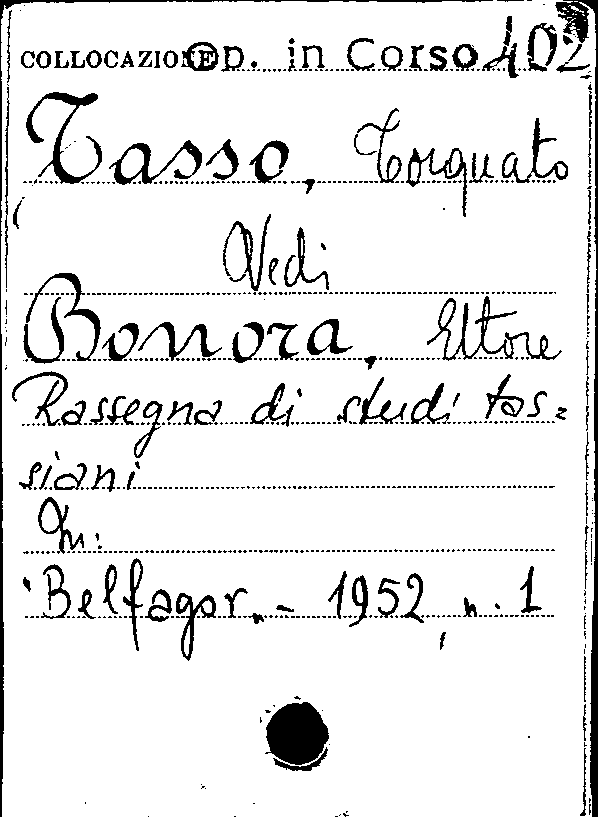 COLLOCAZIONE Op. in Corso 402
Tasso, Torquato
Vedi
Bonora, Ettore
Rassegna di studi tas=
siani
In:
"Belfagor" - 1952, n. 1